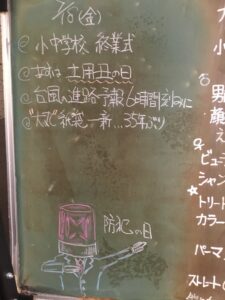 7/18(金)
◎小中学校 終業式
◎あすは 土用丑の日
◎台風の進路予報 6時間刻みに
◎"大丸"紙袋一新…35年ぶり
防犯の日
男
顔
え
ビュー
シャン
トリート
カラー
パーマ
ストレート